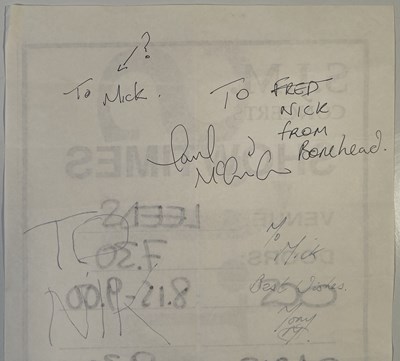 ?
To Mick.
TO FRED
NICK
FROM
Bonehead.
Paul
McGuigan
TO
NIK
To
Mick
Best wishes
Tony
S.J.M
CONCERTS
SHOWTIMES
VENUE: LEEDS
DOORS: 7.30
8.15-9.00